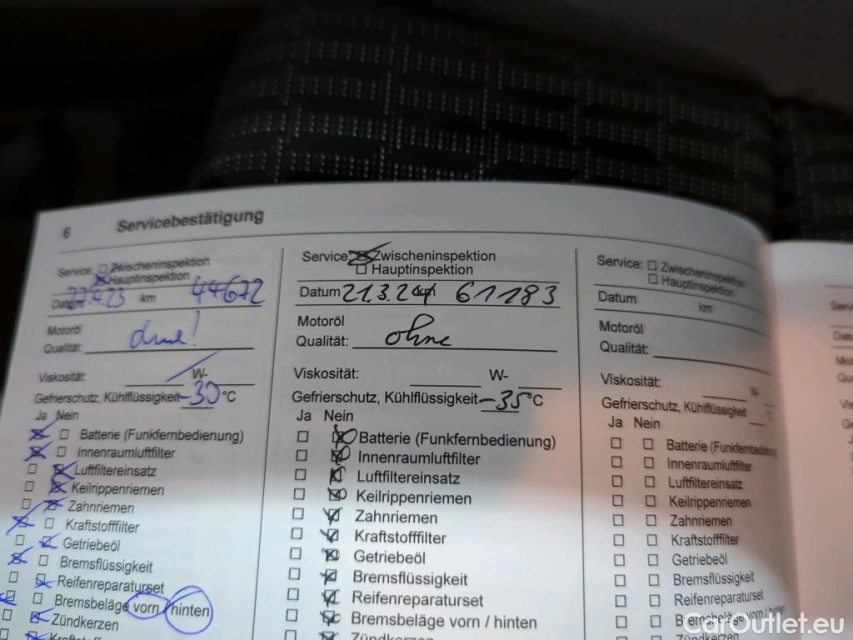 6 Servicebestätigung
Service: Zwischeninspektion
Hauptinspektion
Datum 27.4.23 km 44672
Motoröl
Qualität: ohne!
Viskosität: W-
Gefrierschutz, Kühlflüssigkeit -30 °C
Ja Nein
Batterie (Funkfernbedienung)
Innenraumluftfilter
Luftfiltereinsatz
Keilrippenriemen
Zahnriemen
Kraftstofffilter
Getriebeöl
Bremsflüssigkeit
Reifenreparaturset
Bremsbeläge vorn / hinten
Zündkerzen
Service: Zwischeninspektion
Hauptinspektion
Datum 21.3.24 km 61183
Motoröl
Qualität: ohne
Viskosität: W-
Gefrierschutz, Kühlflüssigkeit -35 °C
Ja Nein
Batterie (Funkfernbedienung)
Innenraumluftfilter
Luftfiltereinsatz
Keilrippenriemen
Zahnriemen
Kraftstofffilter
Getriebeöl
Bremsflüssigkeit
Reifenreparaturset
Bremsbeläge vorn / hinten
Zündkerzen
Service: Zwischeninspektion
Hauptinspektion
Datum km
Motoröl
Qualität:
Viskosität:
Gefrierschutz, Kühlflüssigkeit
Ja Nein
Batterie (Funkfernbedienung)
Innenraumluftfilter
Luftfiltereinsatz
Keilrippenriemen
Zahnriemen
Kraftstofffilter
Getriebeöl
Bremsflüssigkeit
Reifenreparaturset
Bremsbeläge vorn / hinten
CarOutlet.eu